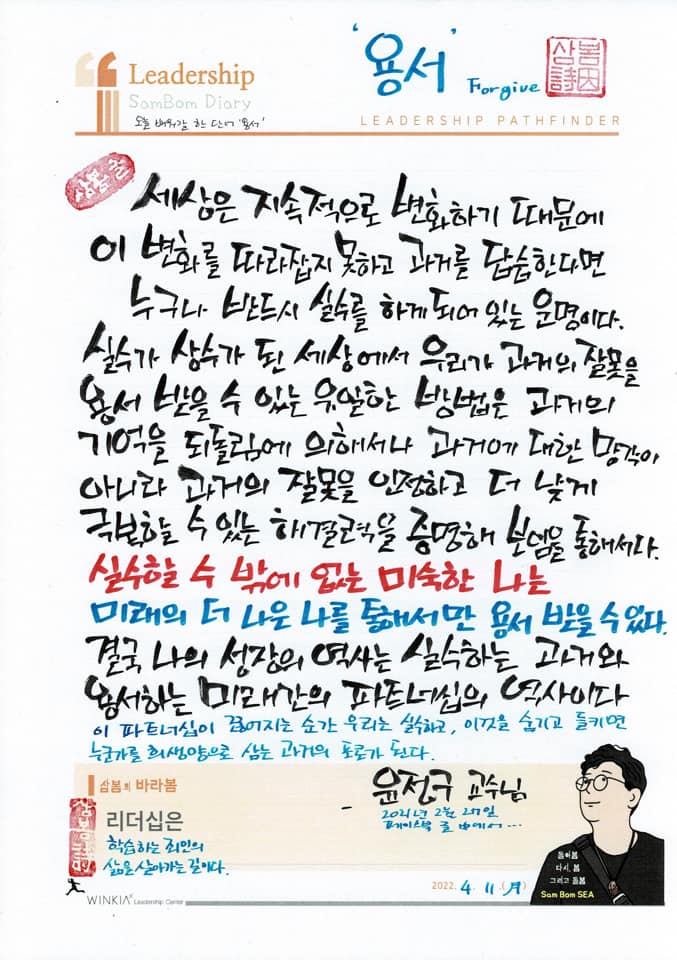 '용서' Forgive
삼봄
詩因
Leadership
SamBom Diary
오늘 배워갈 한 단어 '용서'
LEADERSHIP PATHFINDER
세상은 지속적으로 변화하기 때문에
이 변화를 따라잡지 못하고 과거를 답습한다면
누구나 반드시 실수를 하게 되어 있는 운명이다.
실수가 상수가 된 세상에서 우리가 과거의 잘못을
용서 받을 수 있는 유일한 방법은 과거의
기억을 되돌림에 의해서나 과거에 대한 망각이
아니라 과거의 잘못을 인정하고 더 낮게
극복할 수 있는 해결력을 증명해 보임을 통해서다.
실수할 수 밖에 없는 미숙한 나는
미래의 더 나은 나를 통해서만 용서 받을 수 있다.
결국 나의 성장의 역사는 실수하는 과거와
용서하는 미래간의 파트너십의 역사이다
이 파트너십이 끊어지는 순간 우리는 실수하고, 이것을 숨기고 들키면
누군가를 희생양으로 삼는 과거의 포로가 된다.
삼봄의 바라봄
- 윤정구 교수님
2021년 2월 27일
페이스북 글 中에서...
리더십은
학습하는 죄인의
삶을 살아가는 길이다.
돌아봄
다시, 봄
그리고 돌봄
Sam Bom SEA
2022. 4. 11.(月)
WINKIA Leadership Center